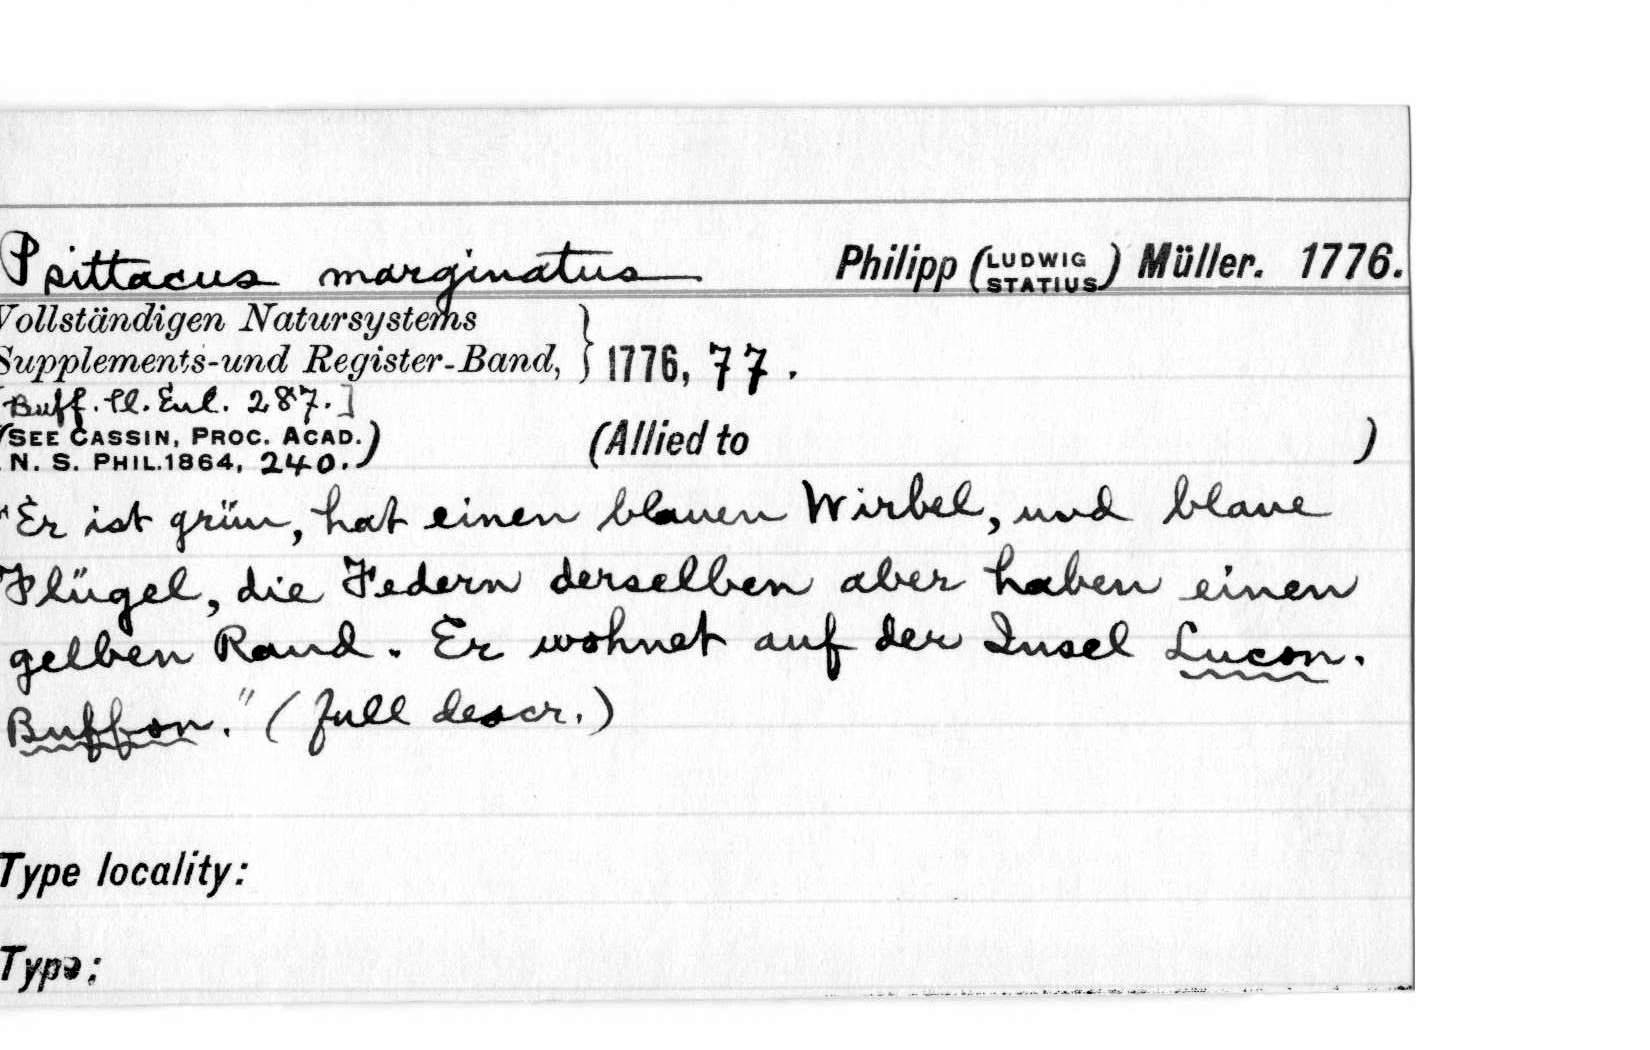 Psittacus marginatus Philipp (LUDWIG STATIUS) Müller. 1776.
Vollständigen Natursystems
Supplements-und Register-Band, } 1776, 77.
[Buff. Pl. Enl. 287.]
(SEE CASSIN, PROC. ACAD.
N. S. PHIL. 1864, 240.) (Allied to )
"Er ist grün, hat einen blauen Wirbel, und blaue
Flügel, die Federn derselben aber haben einen
gelben Rand. Er wohnet auf der Insel Lucon.
Buffon." (full descr.)
Type locality:
Type: